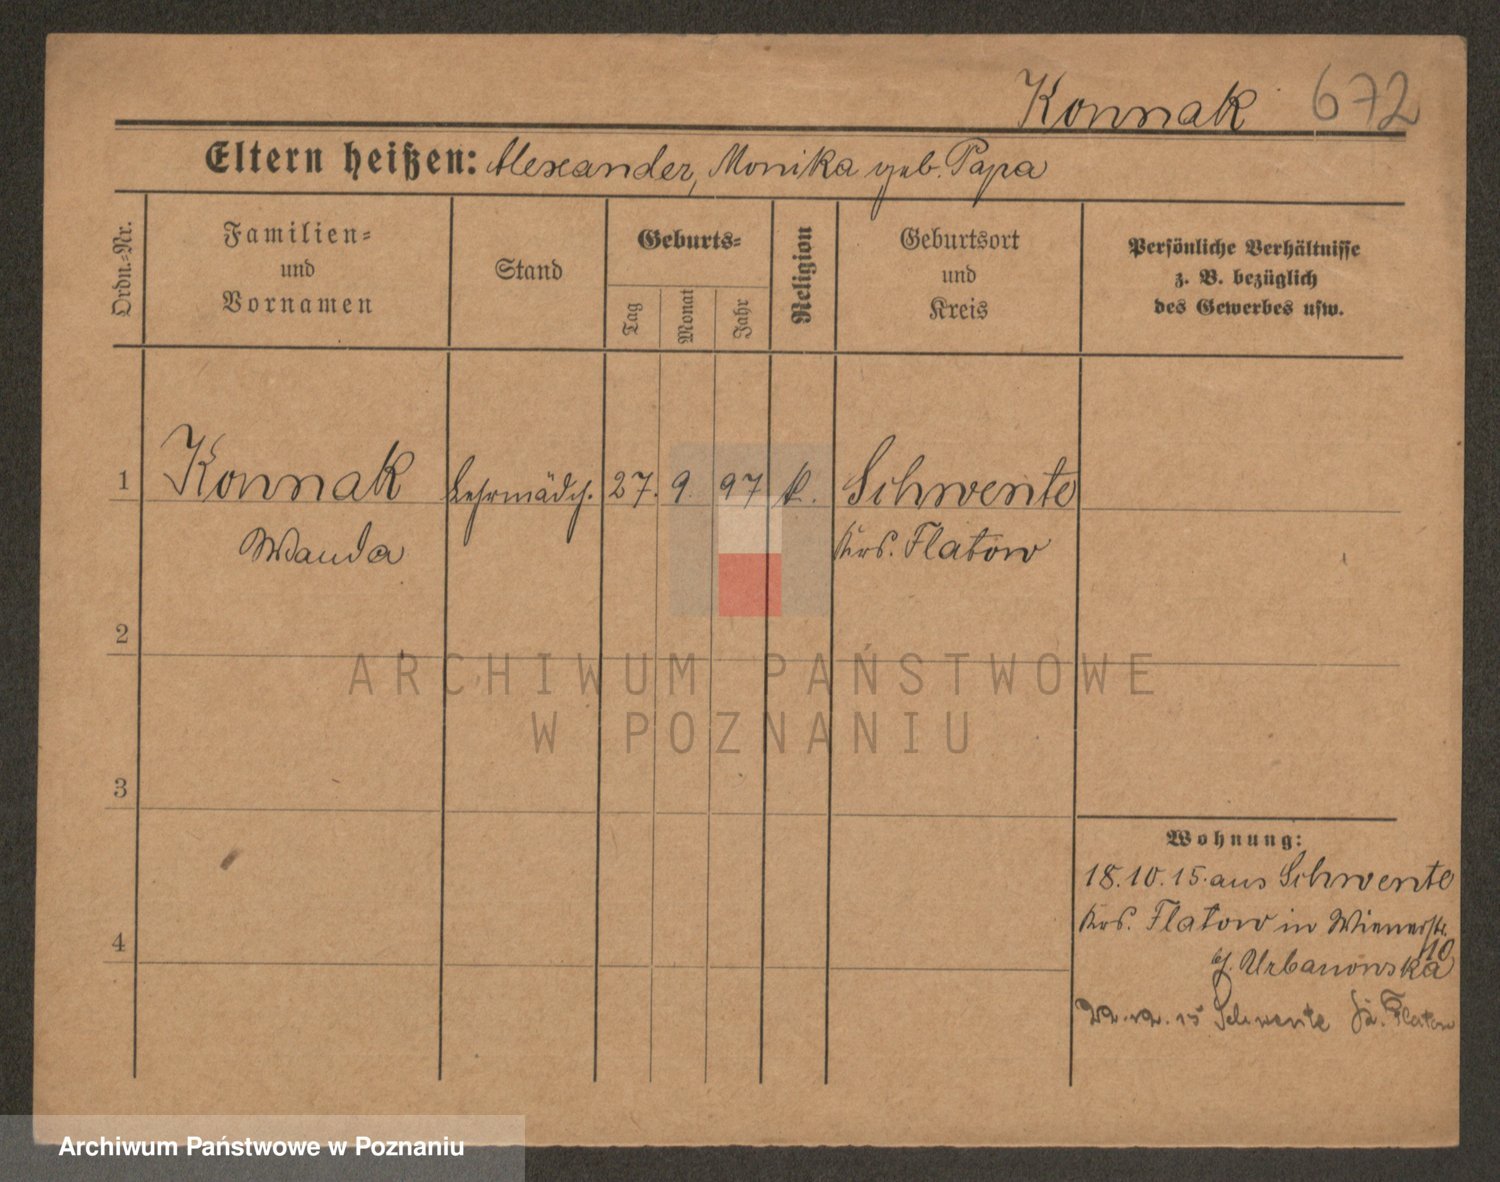 Konnak 672
Eltern heißen: Alexander, Monika geb. Papa
Ordn.-Nr.
Familien-
und
Vornamen
Stand
Geburts-
Tag
Monat
Jahr
Religion
Geburtsort
und
Kreis
Persönliche Verhältnisse
z. B. bezüglich
des Gewerbes usw.
1 Konnak Lehrmädch. 27. 9. 97 k. Schwente
Wanda Krs. Flatow
2
ARCHIWUM PAŃSTWOWE
W POZNANIU
3
Wohnung:
18.10.15. aus Schwente
Krs. Flatow in Wienerstr.
10
4
b/. Urbanowska
22.12.15 Schwente Kr. Flatow
Archiwum Państwowe w Poznaniu